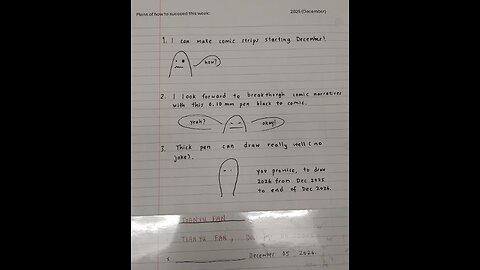 Plans of how to succeed this week: 2025 (December)
1. I can make comic strips starting December!
how?
2. I look forward to breakthorgh comic narratives
with this 0.10 mm pen black to comic.
yeah?
okay!
3. Thick pen can draw really well (no
joke).
you promise, to draw
2026 from Dec 2025
to end of Dec 2026.
TIANYU FAN
TIANYU FAN,
x December 05 2026.